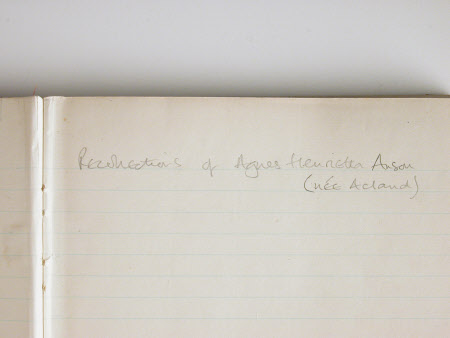 Recollections of Agnes Henrietta Anson
(née Acland)